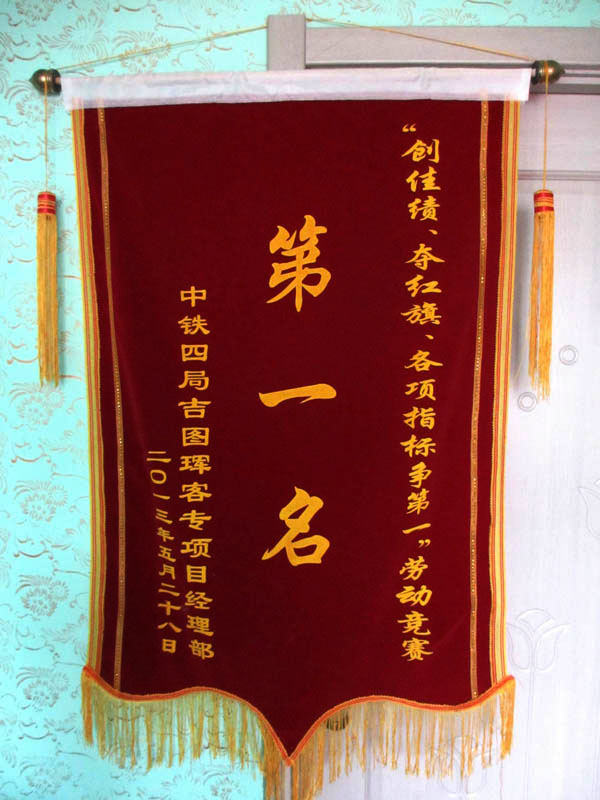 “创佳绩、夺红旗、各项指标争第一”劳动竞赛
第一名
中铁四局吉图珲客专项目经理部
二〇一三年五月二十八日